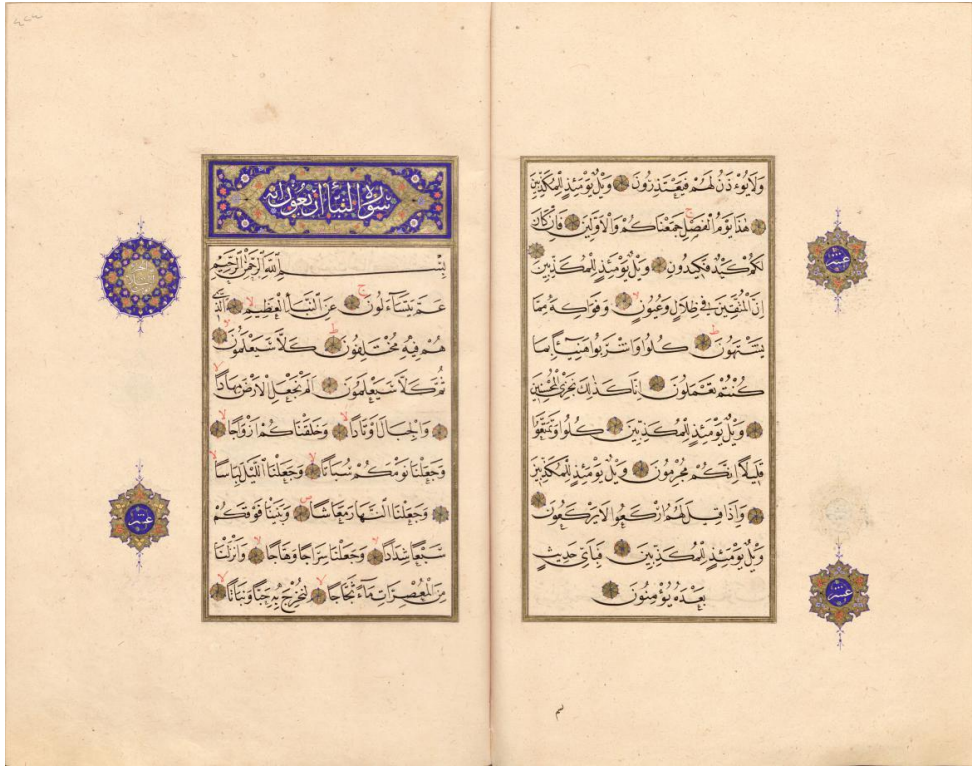 وَلَا يُؤْذَنُ لَهُمْ فَيَعْتَذِرُونَ وَيْلٌ يَوْمَئِذٍ لِلْمُكَذِّبِينَ
هٰذَا يَوْمُ الْفَصْلِ جَمَعْنَاكُمْ وَالْأَوَّلِينَ فَإِنْ كَانَ
لَكُمْ كَيْدٌ فَكِيدُونِ وَيْلٌ يَوْمَئِذٍ لِلْمُكَذِّبِينَ
إِنَّ الْمُتَّقِينَ فِي ظِلَالٍ وَعُيُونٍ وَفَوَاكِهَ مِمَّا
يَشْتَهُونَ كُلُوا وَاشْرَبُوا هَنِيئًا بِمَا
كُنْتُمْ تَعْمَلُونَ إِنَّا كَذٰلِكَ نَجْزِي الْمُحْسِنِينَ
وَيْلٌ يَوْمَئِذٍ لِلْمُكَذِّبِينَ كُلُوا وَتَمَتَّعُوا
قَلِيلًا إِنَّكُمْ مُجْرِمُونَ وَيْلٌ يَوْمَئِذٍ لِلْمُكَذِّبِينَ
وَإِذَا قِيلَ لَهُمُ ارْكَعُوا لَا يَرْكَعُونَ
وَيْلٌ يَوْمَئِذٍ لِلْمُكَذِّبِينَ فَبِأَيِّ حَدِيثٍ
بَعْدَهُ يُؤْمِنُونَ
عشر
عشر
سورة النبأ اربعون اية
بِسْمِ اللّٰهِ الرَّحْمٰنِ الرَّحِيمِ
عَمَّ يَتَسَاءَلُونَ عَنِ النَّبَإِ الْعَظِيمِ الَّذِي
هُمْ فِيهِ مُخْتَلِفُونَ كَلَّا سَيَعْلَمُونَ
ثُمَّ كَلَّا سَيَعْلَمُونَ أَلَمْ نَجْعَلِ الْأَرْضَ مِهَادًا
وَالْجِبَالَ أَوْتَادًا وَخَلَقْنَاكُمْ أَزْوَاجًا
وَجَعَلْنَا نَوْمَكُمْ سُبَاتًا وَجَعَلْنَا اللَّيْلَ لِبَاسًا
وَجَعَلْنَا النَّهَارَ مَعَاشًا وَبَنَيْنَا فَوْقَكُمْ
سَبْعًا شِدَادًا وَجَعَلْنَا سِرَاجًا وَهَّاجًا وَأَنْزَلْنَا
مِنَ الْمُعْصِرَاتِ مَاءً ثَجَّاجًا لِنُخْرِجَ بِهِ حَبًّا وَنَبَاتًا
عشر